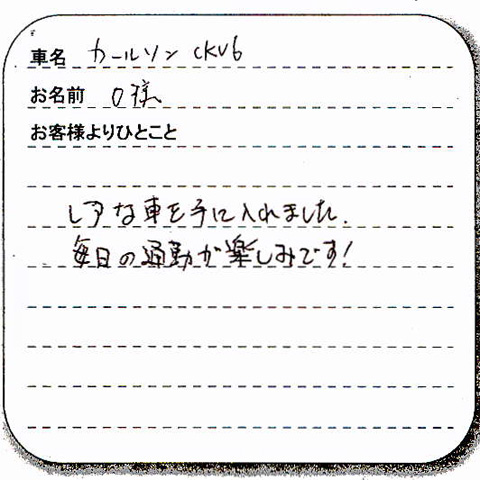 車名 カールソン CKV6
お名前 O様
お客様よりひとこと
レアな車を手に入れました.
毎日の通勤が楽しみです!